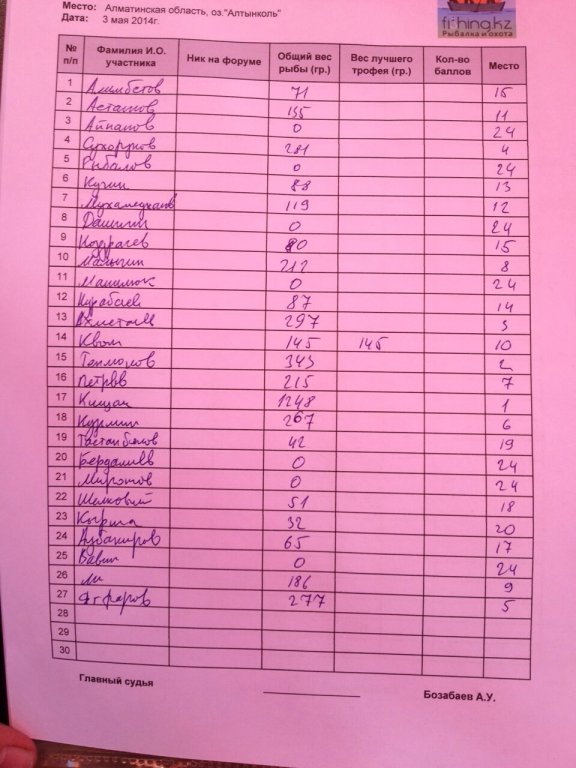 Место: Алматинская область, оз."Алтынколь"
Дата: 3 мая 2014г.
fishing.kz
Рыбалка и охота
№ п/п Фамилия И.О. участника Ник на форуме Общий вес рыбы (гр.) Вес лучшего трофея (гр.) Кол-во баллов Место
1 Алимбетов 71 15
2 Асташов 135 11
3 0 24
4 Сухоруков 281 4
5 Рыбалов 0 24
6 Кучин 88 13
7 Мухамеджанов 119 12
8 Дашин 0 24
9 80 15
10 Малыгин 212 8
11 0 24
12 Курабаев 87 14
13 Ахметов 297 3
14 145 145 10
15 343 2
16 Петров 215 7
17 Кищак 1248 1
18 267 6
19 Тастанбеков 42 19
20 Бердалиев 0 24
21 Миронов 0 24
22 Шелковый 51 18
23 32 20
24 Аубакиров 65 17
25 Вавин 0 24
26 Ли 186 9
27 277 5
28
29
30
Главный судья Бозабаев А.У.